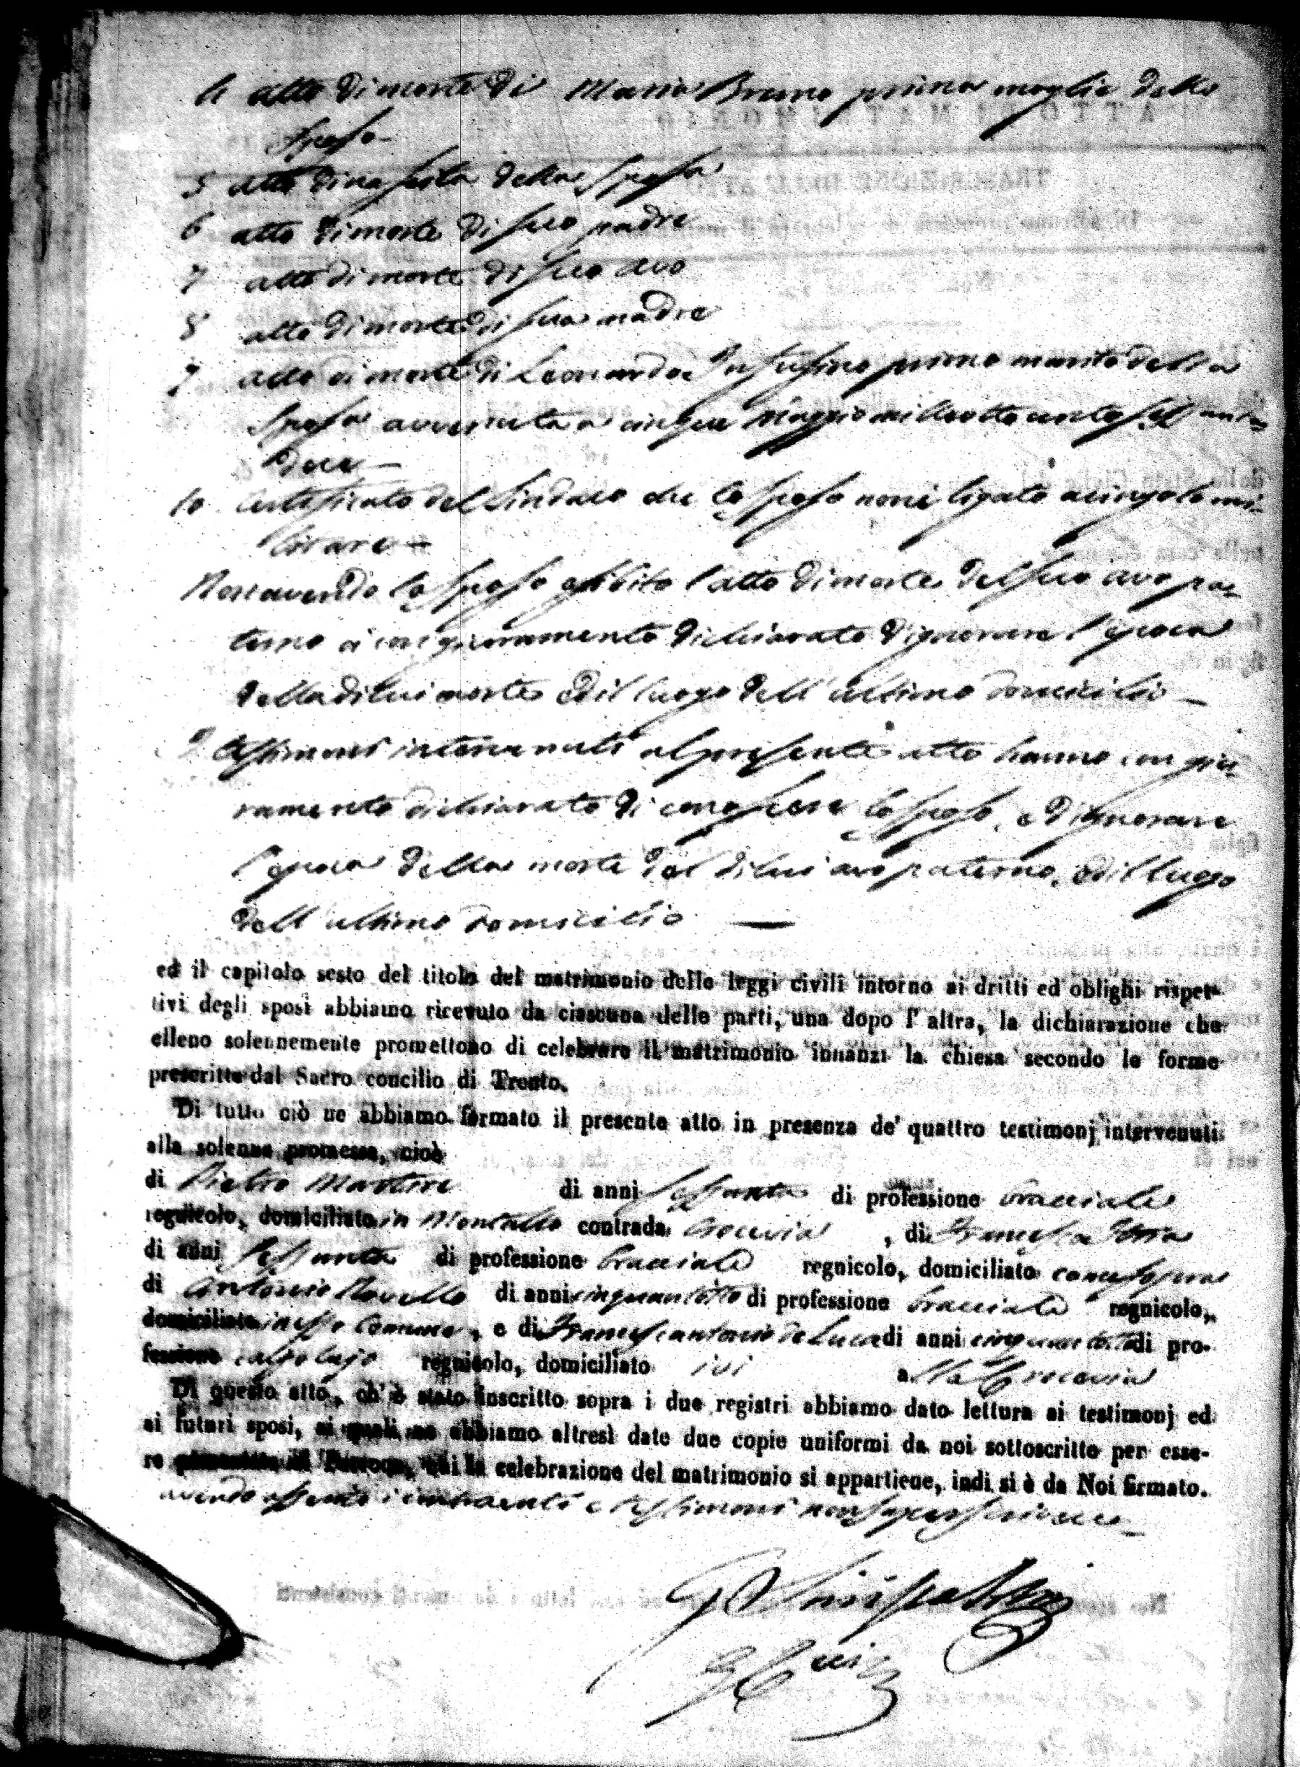 4 atto di morte di Maria Bruno prima moglie dello
Sposo
5 atto di nascita della Sposa
6 atto di morte di suo padre
7 atto di morte di suo avo
8 atto di morte di sua madre
9 atto di morte di Leonardo primo marito della
Sposa avvenuta a cinque Maggio milleottocentosessanta
due
10 Certificato del Sindaco che lo Sposo non è ligato a cingolo mi-
litare
Non avendo lo Sposo esibito l'atto di morte del suo avo pa-
terno à con giuramento dichiarato d'ignorare l'epoca
della di lui morte ed il luogo dell'ultimo domicilio
I testimoni intervenuti al presente atto hanno con giu-
ramento dichiarato di conoscere lo Sposo, ed ignorare
l'epoca della morte del di lui avo paterno, ed il luogo
dell'ultimo domicilio
ed il capitolo sesto del titolo del matrimonio delle leggi civili intorno ai dritti ed oblighi rispet-
tivi degli sposi abbiamo ricevuto da ciascuna delle parti, una dopo l'altra, la dichiarazione che
elleno solennemente promettono di celebrare il matrimonio innanzi la chiesa secondo le forme
prescritte dal Sacro concilio di Trento.
Di tutto ciò ne abbiamo formato il presente atto in presenza de' quattro testimonj intervenuti
alla solenne promessa, cioè
di Pietro Martire di anni sessanta di professione bracciale
regnicolo, domiciliato in Montalto contrada Crocevia, di Francesco
di anni sessanta di professione bracciale regnicolo, domiciliato come sopra
di Antonio Novello di anni cinquantotto di professione bracciale regnicolo,
domiciliato in esso Comune, e di Francescantonio de Luca di anni cinquantotto di pro-
fessione calzolajo regnicolo, domiciliato ivi alla Crocevia
Di questo atto, ch'è stato inscritto sopra i due registri abbiamo dato lettura ai testimonj ed
ai futuri sposi, ai quali ne abbiamo altresì date due copie uniformi da noi sottoscritte per esse-
re presentate al Parroco, cui la celebrazione del matrimonio si appartiene, indi si è da Noi firmato.
avendo asserito i contraenti e testimoni non saper scrivere